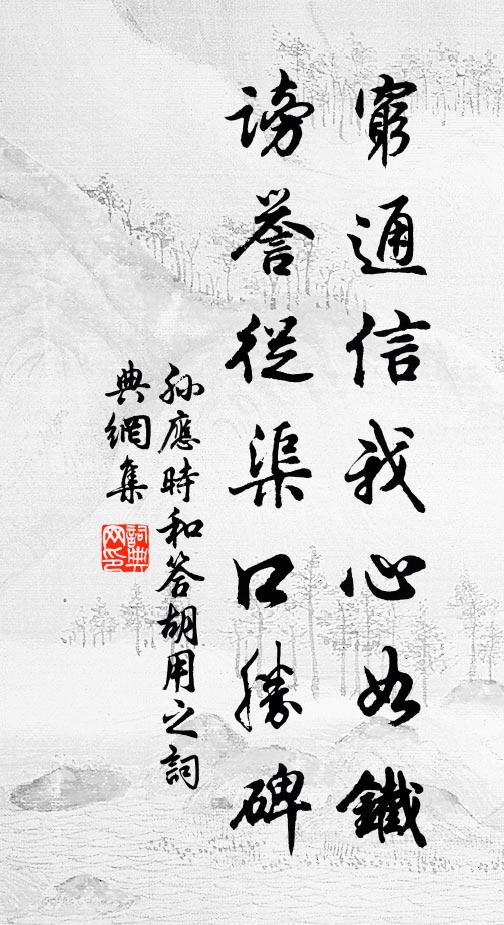 窮通信我心如鐵
謗譽從渠口勝碑
孙應時和答胡用之詞
典網集
詞典
网印